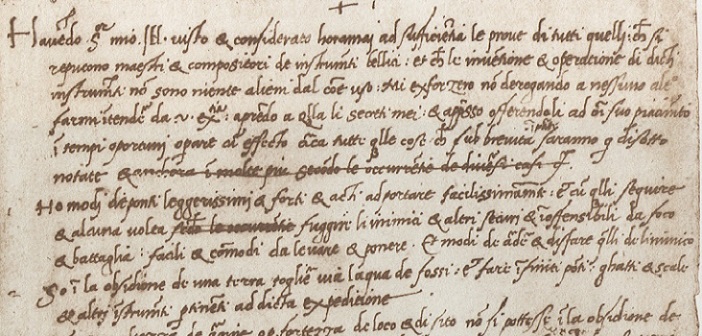 Havẽdo Sr mio Ill. visto & considerato horamai ad sufficiẽtia le prove di tutti quelli: chẽ si
reputono maestri & compositori de instrumẽti bellici: et chẽ le inventione & operatione di dicti
instrumẽti nõ sono niente alieni dal cõe uso: Mi exforzero nõ derogando a nessuno
farmi ĩtender da v. extia: aprẽdo a qlla li secreti mei: & apresso offerendoli ad oĩ suo piacimẽto
ĩ tempi oportuni operare cũ effecto circa tutte qlle cose chẽ sub brevita ĩ parte sarãno q disotto
notate & anchora ĩ molte piu secõdo le occurrentie de diversi casi
Ho modi de ponti leggerissimi & forti & acti ad portare facilissimamẽte: et cũ qlli seguire
& alcuna volta secõdo le occurrentie fuggire li inimici & altri securi & inoffensibili da foco
& battaglia: facili & cõmodi da levare & ponere. Et modi de ardere & disfare qlli de linimico
So ĩ la obsidione de una terra toglier via laqua de fossi: et fare ĩfiniti ponti ghatti & scale
& altri ĩstrumẽti ptinẽti ad dicta expeditione
de argine o p fortezza de loco & di sito nõ si pottesse ĩ la obsidione de